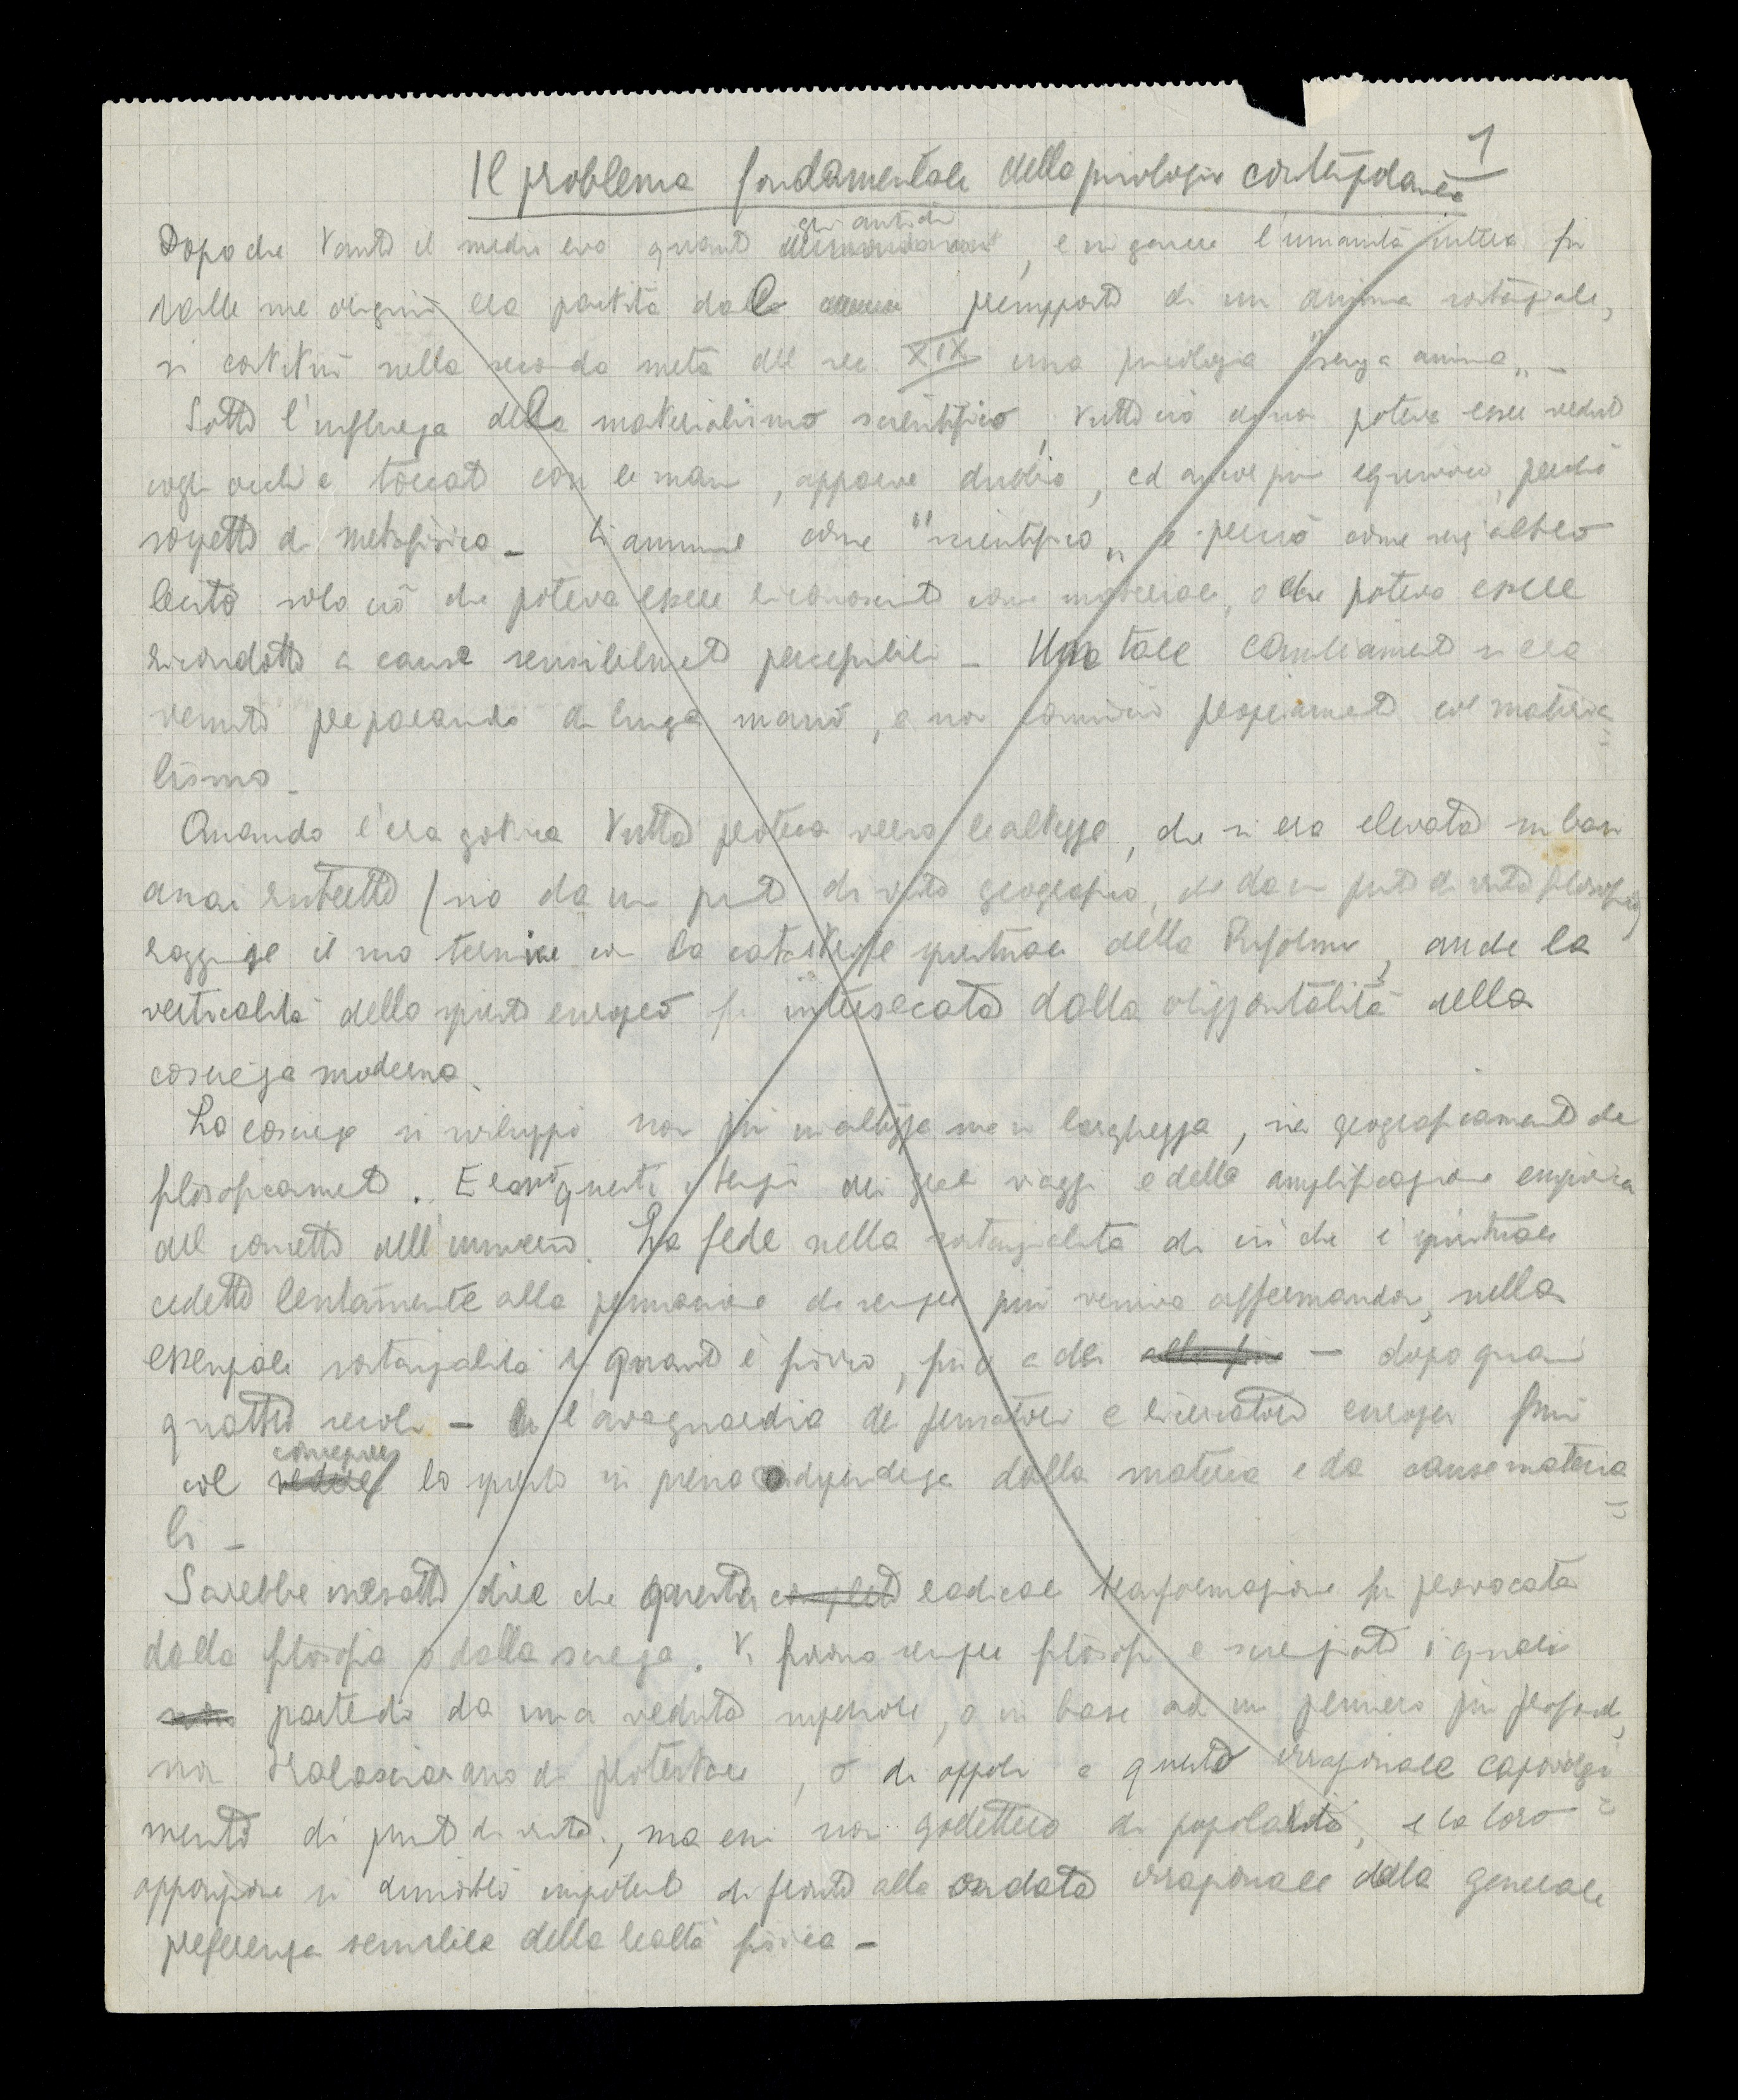 1
Il problema fondamentale della psicologia contemporanea
gli antichi
Dopo che tanto il medio evo quanto, e in genere l'umanità intera fin
dalle sue origini era partita dal presupposto di un anima sostanziale,
si costituì nella seconda metà del sec XIX una psicologia "senza anima" -
Sotto l'influenza della materialismo scientifico, tutto ciò che non poteva esser veduto
cogli occhi e toccato con le mani, apparve dubbio, ed ancor più equivoco, perché
sospetto di metafisica - Si ammise come "scientifico" e perciò come senz'altro
lecito solo ciò che poteva essere riconosciuto come materiale, o che poteva essere
ricondotto a cause sensibilmente percepibili - Un tale cambiamento si era
venuto preparando di lunga mano, e non cominciò propriamente col materia=
lismo -
Quando l'era gotica tutta protesa verso le altezze, che si era elevata su basi
assai ristrette (sia da un punto di vista geografico, che da un punto di vista filosofico)
raggiunse il suo termine con la catastrofe spirituale della Riforma, anche la
verticalità dello spirito europeo fu intersecata dalla orizzontalità della
coscienza moderna.
La coscienza si sviluppò non più in altezza ma in larghezza, sia geograficamente che
filosoficamente. Erano questi i tempi dei grandi viaggi e della amplificazione empirica
del concetto dell'universo. La fede nella sostanzialità di ciò che è spirituale
cedette lentamente alla persuasione che sempre più veniva affermandosi, nella
essenziale sostanzialità di quanto è fisico, fino a che - dopo quasi
quattro secoli - l'avanguardia dei pensatori e ricercatori europei finì
concepire
col vedere lo spirito in piena dipendenza dalla materia e da cause materia=
li -
Sarebbe inesatto dire che questa completa radicale trasformazione fu provocata
dalla filosofia o dalla scienza. Vi furono sempre filosofi e scienziati i quali
partendo da una veduta superiore, o in base ad un pensiero più profondo,
non tralasciarono di protestare, o di opporsi a questo irrazionale capovolgi=
mento di punto di vista, ma essi non godettero di popolarità, e la loro
opposizione si dimostrò impotente di fronte alla ondata irrazionale della generale
preferenza sensibile della realtà fisica -